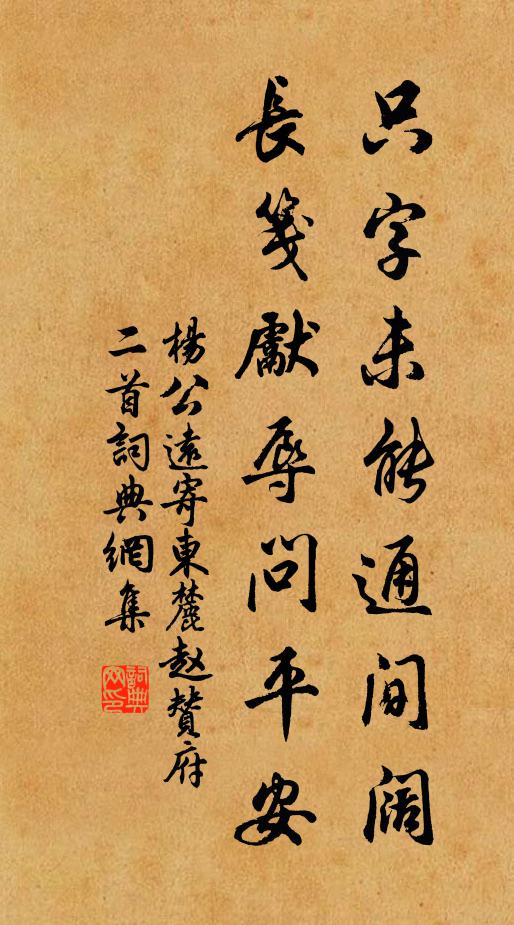 只字未能通间阔
長箋獻辱問平安
楊公遠寄東麓赵贊府
二首詞典網集
詞典网印